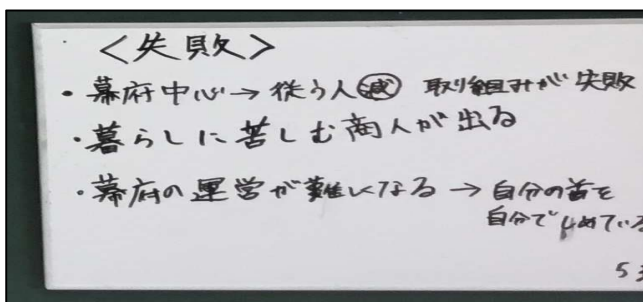 <失敗>
・幕府中心→従う人減 取り組みが失敗
・暮らしに苦しむ商人が出る
・幕府の運営が難しくなる→自分の首を
自分でしめている